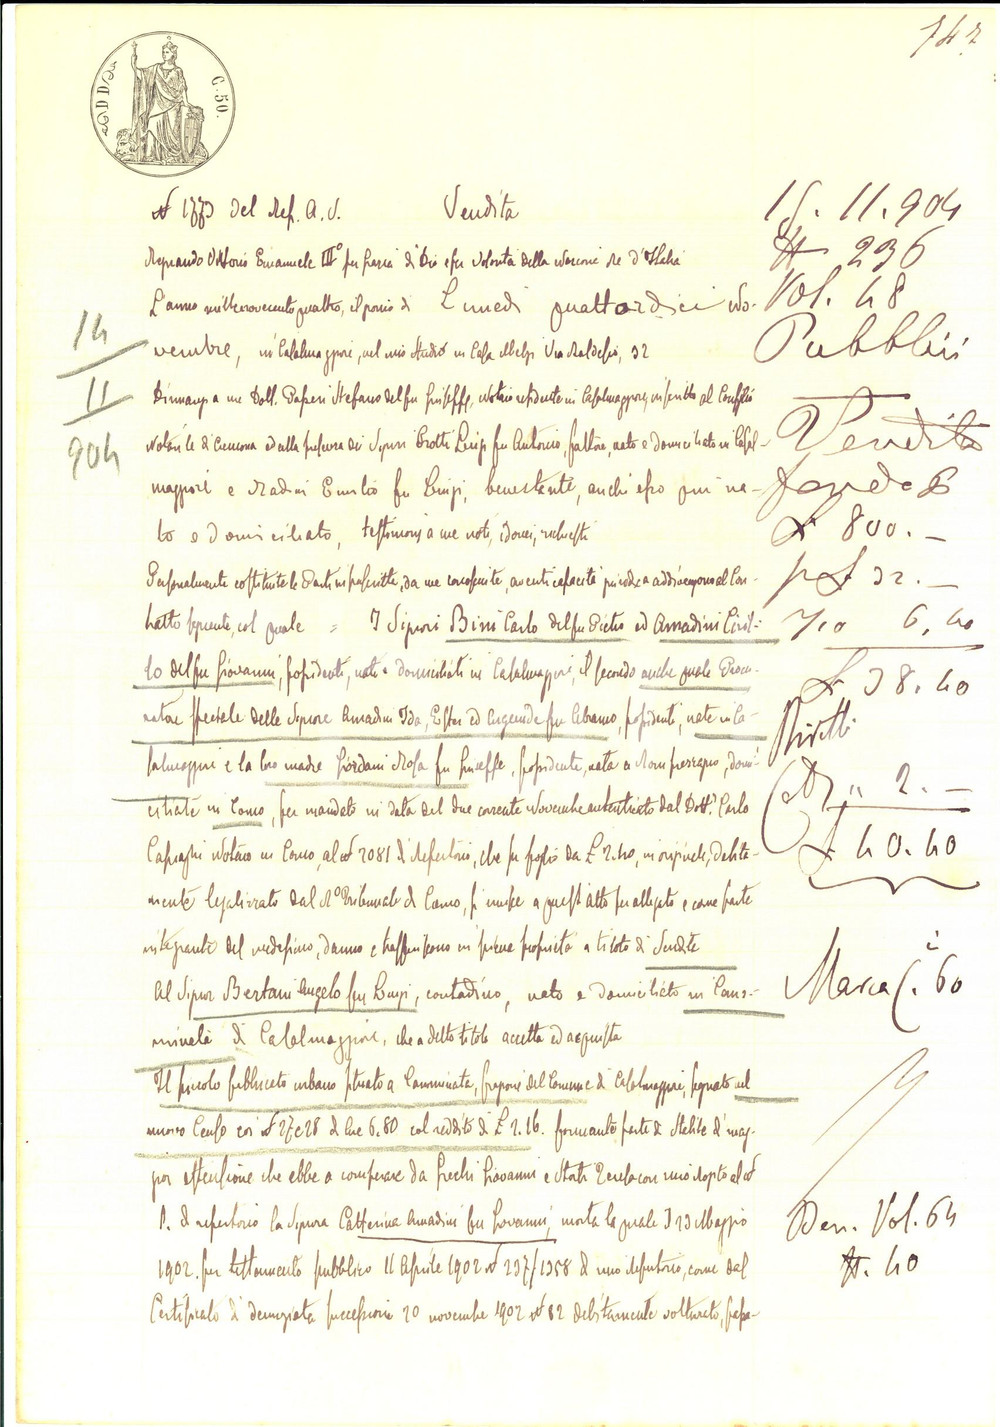 742
ADDÌ
C. 50.
N 1773 del Rep. A. V. Vendita
Regnando Vittorio Emanuele III° per grazia di Dio e per volontà della Nazione Re d'Italia
L'anno millenovecento quattro, il giorno di Lunedì quattordici No-
vembre, in Casalmaggiore, nel mio Studio in Casa Via Baldesio, 32
Dinnanzi a me Dott. Stefano del fu Giuseppe, Notaio residente in Casalmaggiore, inscritto al Consiglio
Notarile di Cremona ed alla presenza dei Signori Grotti Luigi fu Antonio, fattore, nato e domiciliato in Casal-
maggiore e Madini Emilio fu Luigi, benestante, anch'esso qui na-
to e domiciliato, testimoni a me noti, idonei, richiesti
Personalmente costituite le Parti infrascritte, da me conosciute, aventi capacità giuridica addivengono al Con-
tratto seguente, col quale = I Signori Bini Carlo del fu Pietro ed Amadini Ciril-
lo del fu Giovanni, possidenti, nati e domiciliati in Casalmaggiore, il secondo anche quale Procu-
ratore speciale delle Signore Amadini Ida, Ester ed fu Abramo, possidenti, nate in Ca-
salmaggiore e la loro madre Giordani Rosa fu Giuseppe, possidente, nata a domi-
ciliate in Como, per mandato in data del due corrente Novembre autenticato dal Dott. Carlo
Notaio in Como, al N 2081 di Repertorio, che su foglio da £ 2.40, in originale, debita-
mente legalizzato dal R° Tribunale di Como, si unisce a quest'Atto per allegato e come parte
integrante del medesimo, danno e trasferiscono in piena proprietà a titolo di Vendita
Al Signor Bertani Angelo fu Luigi, contadino, nato e domiciliato in Cam-
minata di Casalmaggiore, che a detto titolo accetta ed acquista
Il piccolo fabbricato urbano situato a Camminata, frazione del Comune di Casalmaggiore, segnato nel
nuovo Censo coi N 27 e 28 di are 6.80 col reddito di £ 2.16. formante parte di Stabile di mag-
gior estensione che ebbe a comperare da Giovanni e con mio rogito al N
di repertorio la Signora Catterina Amadini fu Giovanni, morta la quale I 23 Maggio
1902. per testamento pubblico 11 Aprile 1902 N 237/1358 di mio Repertorio, come dal
Certificato di denunziata successione 20 novembre 1902 N 82 debitamente volturato,
14
11
904
15. 11. 904
N 236
Vol. 48
Pubblici
Vendita
£ 800. –
£ 32. –
6,40
£ 38. 40
Diritti
" 2. –
£ 40. 40
Marca C. 60
Den. Vol. 64
N. 40